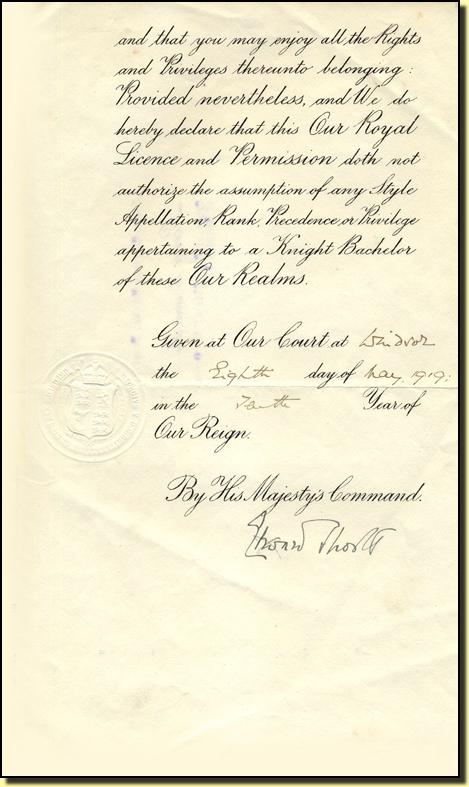 and that you may enjoy all the Rights
and Privileges thereunto belonging :
Provided nevertheless, and We do
hereby declare that this Our Royal
Licence and Permission doth not
authorize the assumption of any Style
Appellation, Rank, Precedence, or Privilege
appertaining to a Knight Bachelor
of these Our Realms.
Given at Our Court at Windsor
the Eighth day of May, 1919:
in the Tenth Year of
Our Reign.
By His Majesty's Command.
Edward Shortt